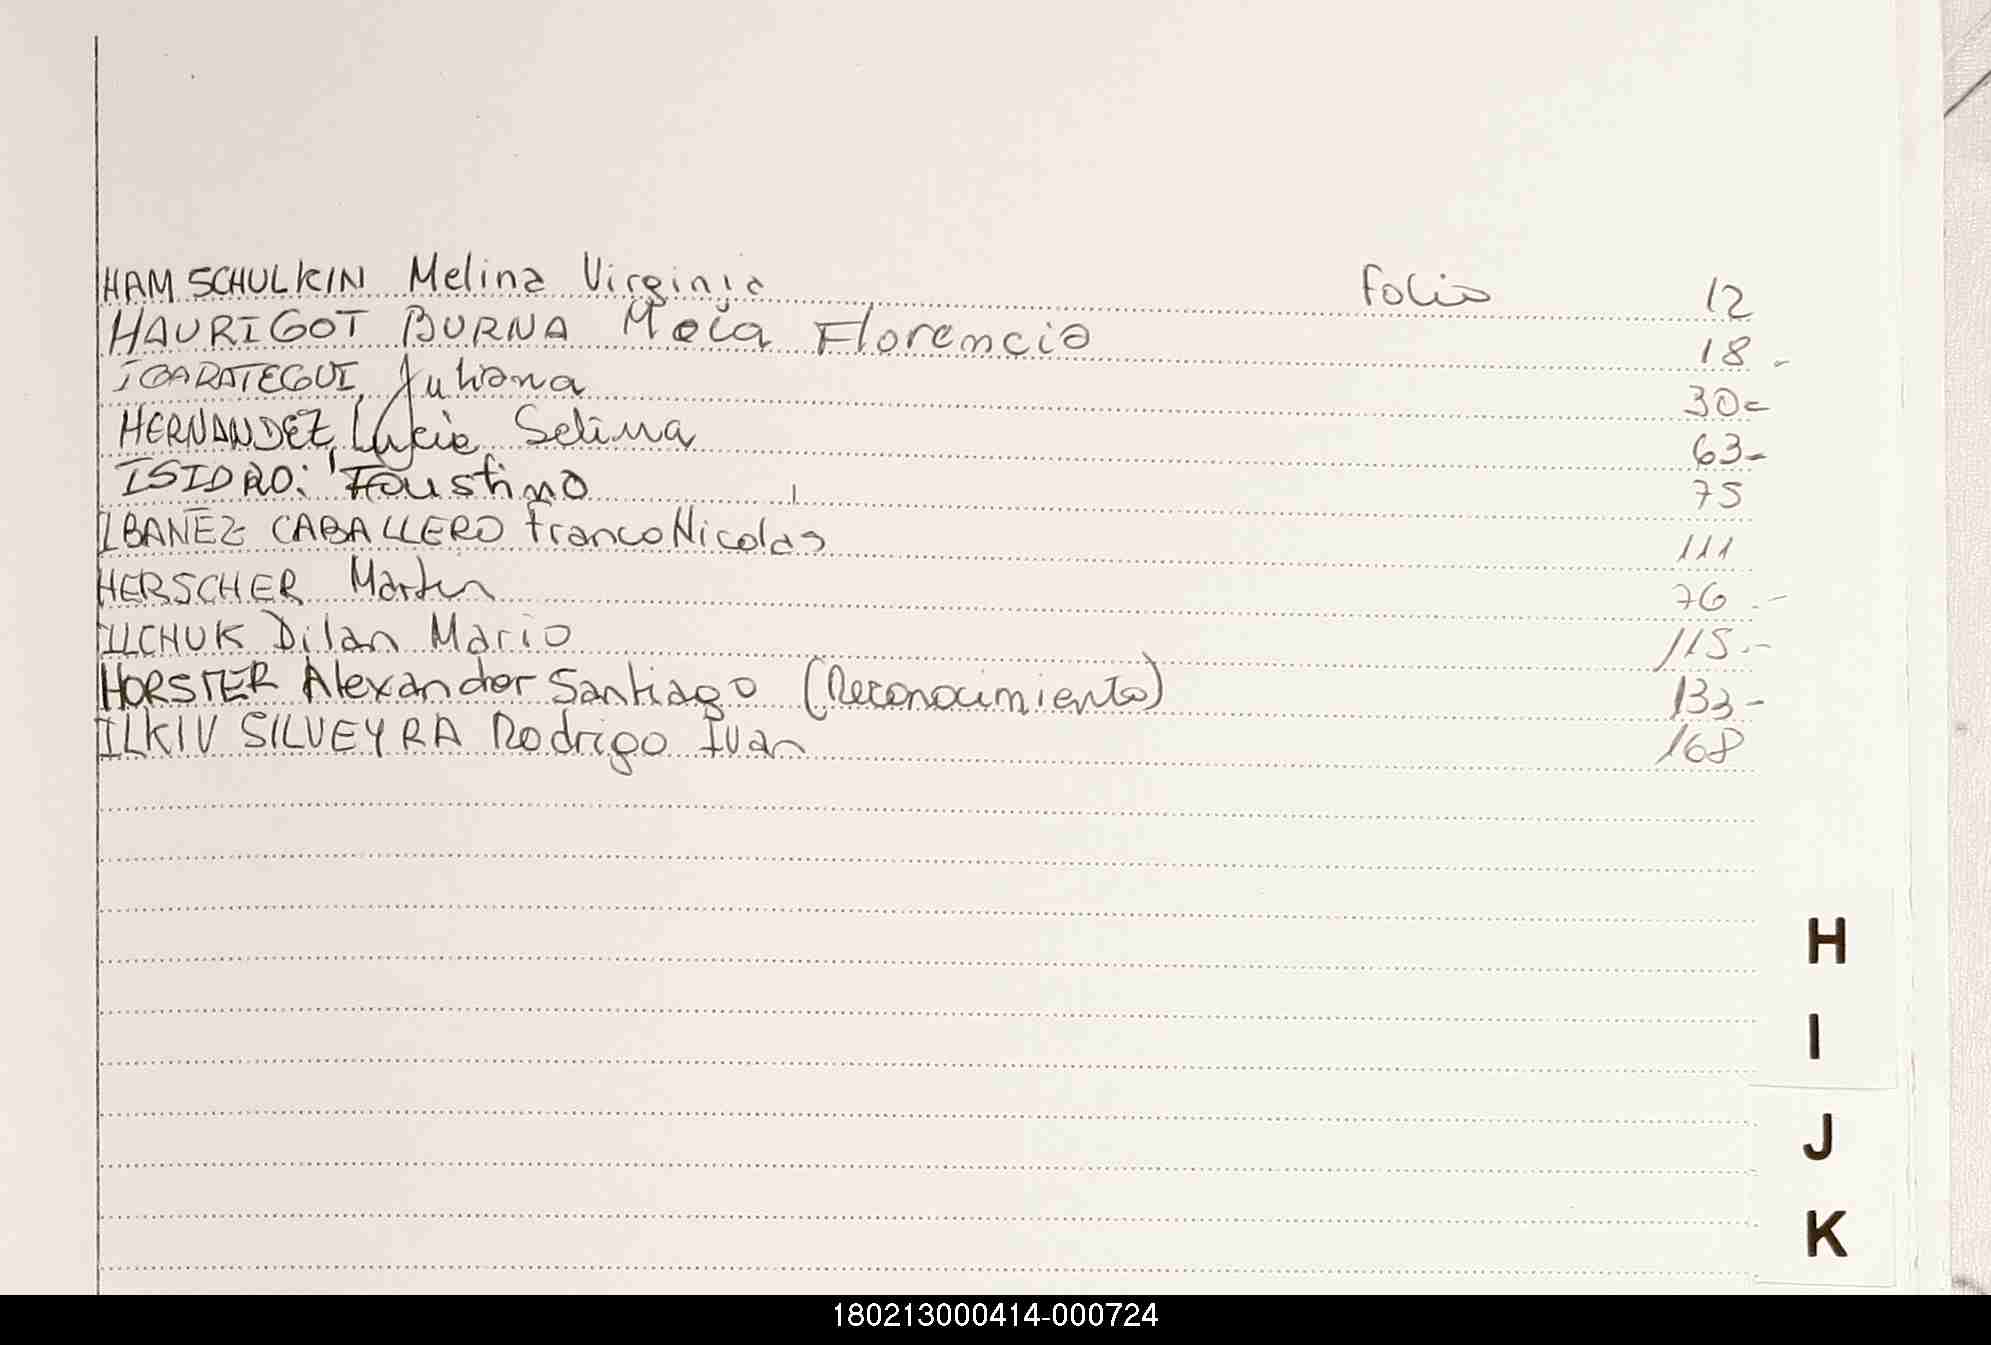 HAM SCHULKIN Melina Virginia Folio 12
HAURIGOT BURNA Meia Florencia 18 -
IGARATEGUI, Juliana 30=
HERNANDEZ, Lucia Selina 63-
ISIDRO: Faustino 75
IBAÑEZ CABALLERO Franco Nicolas 111
HERSCHER Martin 76 .-
ILCHUK Dilan Mario 115.-
HORSTER Alexander Santiago (Reconocimiento) 133-
ILKIV SILVEYRA Rodrigo Ivan 168
H
I
J
K
180213000414-000724